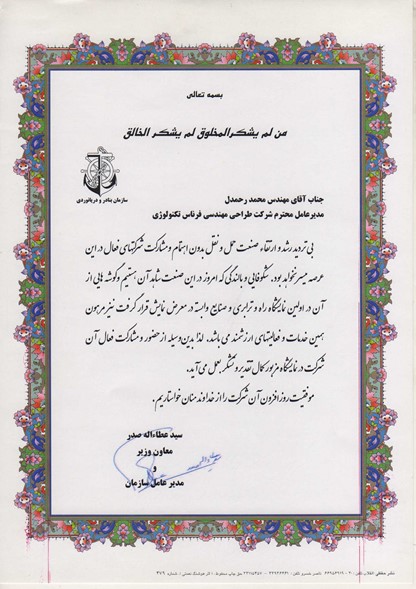 بسمه تعالی
من لم یشکرالمخلوق لم یشکر الخالق
سازمان بنادر و دریانوردی
جناب آقای مهندس محمد رحمدل
مدیرعامل محترم شرکت طراحی مهندسی فرناس تکنولوژی
بی تردید رشد و ارتقاء صنعت حمل و نقل بدون اهتمام و مشارکت شرکتهای فعال در این
عرصه میسر نخواهد بود. شکوفایی و بالندگی که امروز در این صنعت شاهد آن هستیم و گوشه هایی از
آن در اولین نمایشگاه راه و ترابری و صنایع وابسته در معرض نمایش قرار گرفت نیز مرهون
همین خدمات و فعالیتهای ارزشمند می باشد. لذا بدین وسیله از حضور و مشارکت فعال آن
شرکت در نمایشگاه مزبور کمال تقدیر و تشکر بعمل می آید.
موفقیت روزافزون آن شرکت را از خداوند منان خواستاریم.
سید عطاءاله صدر
معاون وزیر
و
مدیر عامل سازمان